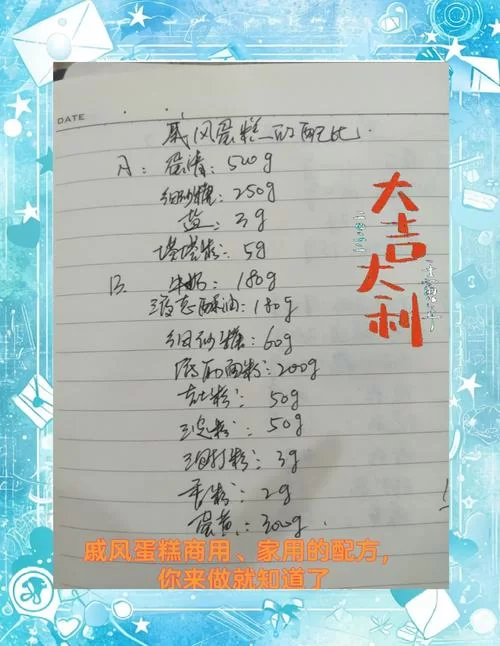 DATE
戚风蛋糕的配比.
A: 蛋清: 500g
细砂糖: 250g
盐: 3g
塔塔粉: 5g
B. 牛奶: 180g
液态酥油: 180g
细砂糖: 60g
低筋面粉: 200g
吉士粉: 50g
淀粉: 50g
泡打粉: 3g
香粉: 2g
蛋黄: 300g.
大吉大利
戚风蛋糕商用、家用的配方,
你来做就知道了